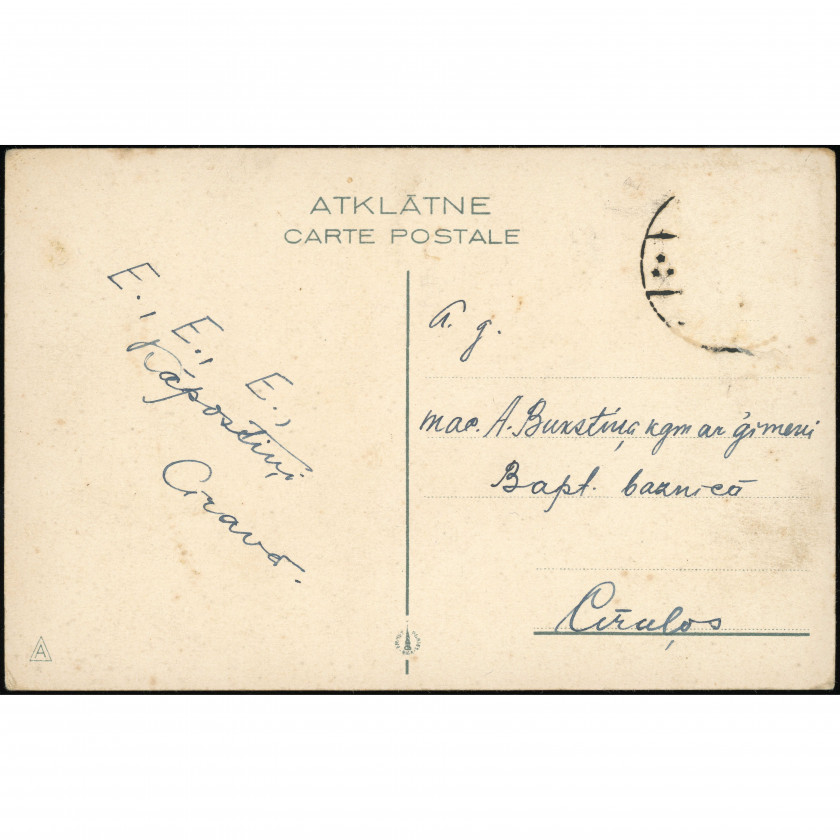 ATKLĀTNE
CARTE POSTALE
E., E., E.,
Kāpostiņi
Cīravā.
A. g.
mac. A. Burstiņa kgm ar ģimeni
Bapt. baznīcā
Cīruļos
A